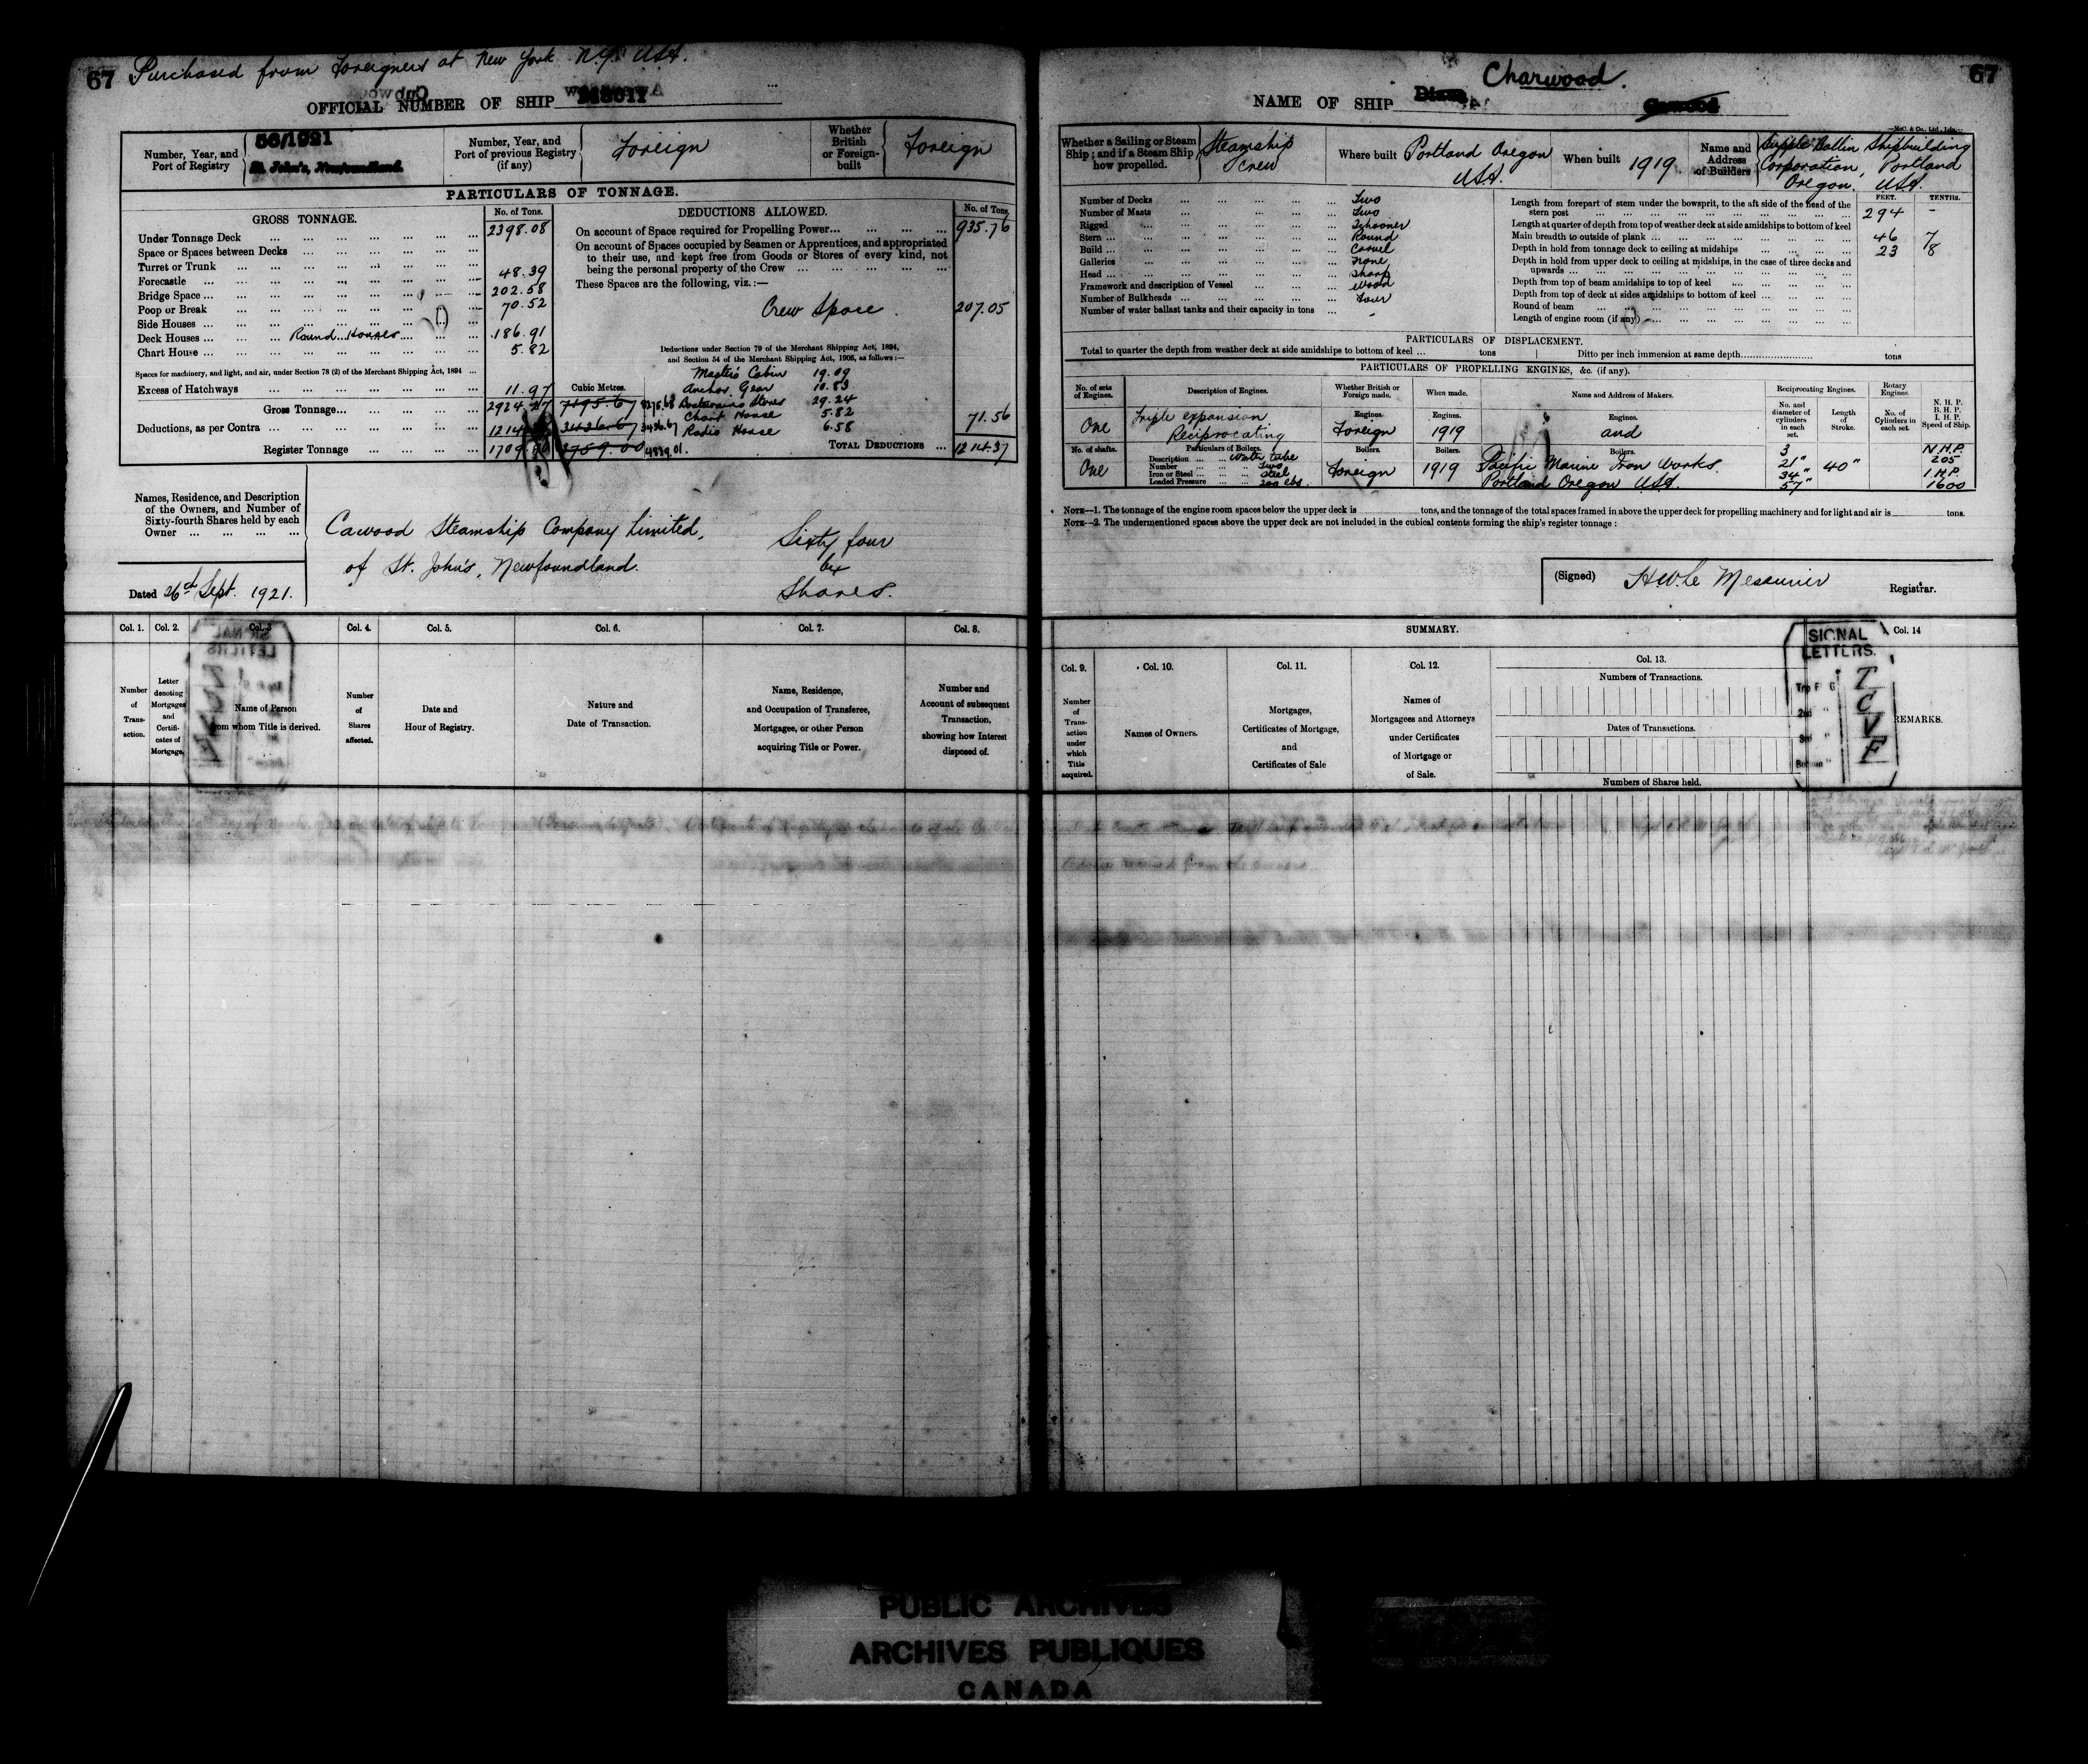 67 Purchased from Foreigners at New York N.Y. USA.
OFFICIAL NUMBER OF SHIP
Number, Year, and Port of Registry
56/1921
St. John's, Newfoundland.
Number, Year, and Port of previous Registry (if any)
Foreign
Whether British or Foreign-built
Foreign
PARTICULARS OF TONNAGE.
GROSS TONNAGE.
No. of Tons.
Under Tonnage Deck 2398.08
Space or Spaces between Decks
Turret or Trunk
Forecastle 48.39
Bridge Space 202.58
Poop or Break 70.52
Side Houses
Deck Houses Round Houses 186.91
Chart House 5.82
Spaces for machinery, and light, and air, under Section 78 (2) of the Merchant Shipping Act, 1894
Excess of Hatchways 11.97
Gross Tonnage 2924.27
Deductions, as per Contra 1214
Register Tonnage 1709.90
Cubic Metres.
7195.67 8275.68
3436.67 3436.67
3759.00 4839.01.
DEDUCTIONS ALLOWED.
No. of Tons.
On account of Space required for Propelling Power 935.76
On account of Spaces occupied by Seamen or Apprentices, and appropriated
to their use, and kept free from Goods or Stores of every kind, not
being the personal property of the Crew
These Spaces are the following, viz.:—
Crew Space. 207.05
Deductions under Section 79 of the Merchant Shipping Act, 1894,
and Section 54 of the Merchant Shipping Act, 1906, as follows:—
Master's Cabin 19.09
Anchor Gear 10.83
Boatswain's Stores 29.24
Chart House 5.82
Radio House 6.58
71.56
TOTAL DEDUCTIONS 1214.37
Names, Residence, and Description
of the Owners, and Number of
Sixty-fourth Shares held by each
Owner
Cawood Steamship Company Limited,
of St. John's, Newfoundland.
Sixty four
64
Shares.
Dated 26th Sept. 1921.
Col. 1. Col. 2. Col. 3 Col. 4. Col. 5. Col. 6. Col. 7. Col. 8.
Number of Transaction.
Letter denoting Mortgages and Certificates of Mortgage.
Name of Person from whom Title is derived.
Number of Shares affected.
Date and Hour of Registry.
Nature and Date of Transaction.
Name, Residence, and Occupation of Transferee, Mortgagee, or other Person acquiring Title or Power.
Number and Account of subsequent Transaction, showing how Interest disposed of.
67
NAME OF SHIP
Charwood.
Cawood
McC. & Co., Ltd., Ldn.
Whether a Sailing or Steam Ship; and if a Steam Ship how propelled.
Steamship
Screw
Where built
Portland Oregon
USA.
When built 1919
Name and Address of Builders
Supple Ballin Shipbuilding
Corporation, Portland
Oregon. USA.
Number of Decks Two
Number of Masts Two
Rigged Schooner
Stern Round
Build Carvel
Galleries None
Head Sharp
Framework and description of Vessel Wood
Number of Bulkheads Four
Number of water ballast tanks and their capacity in tons -
FEET. TENTHS.
Length from forepart of stem under the bowsprit, to the aft side of the head of the
stern post 294 -
Length at quarter of depth from top of weather deck at side amidships to bottom of keel
Main breadth to outside of plank 46 7
Depth in hold from tonnage deck to ceiling at midships 23 8
Depth in hold from upper deck to ceiling at midships, in the case of three decks and
upwards
Depth from top of beam amidships to top of keel
Depth from top of deck at sides amidships to bottom of keel
Round of beam
Length of engine room (if any)
PARTICULARS OF DISPLACEMENT.
Total to quarter the depth from weather deck at side amidships to bottom of keel ... tons
Ditto per inch immersion at same depth tons
PARTICULARS OF PROPELLING ENGINES, &c. (if any).
No. of sets of Engines. Description of Engines. Whether British or Foreign made. When made. Name and Address of Makers. Reciprocating Engines. Rotary Engines. N. H. P. B. H. P. I. H. P. Speed of Ship.
No. and diameter of cylinders in each set. Length of Stroke. No. of Cylinders in each set.
One
Triple expansion
Reciprocating
Engines. Foreign
Engines. 1919
Engines. and
No. of shafts. One
Particulars of Boilers.
Description Water tube
Number Two
Iron or Steel Steel
Loaded Pressure 200 lbs.
Boilers. Foreign
Boilers. 1919
Boilers. Pacific Marine Iron Works.
Portland Oregon USA.
3
21"
34"
57"
40"
N.H.P.
205
I.H.P.
1600
NOTE—1. The tonnage of the engine room spaces below the upper deck is tons, and the tonnage of the total spaces framed in above the upper deck for propelling machinery and for light and air is tons.
NOTE—2. The undermentioned spaces above the upper deck are not included in the cubical contents forming the ship's register tonnage:
(Signed) HW Le Messurier Registrar.
SUMMARY.
Col. 9. Col. 10. Col. 11. Col. 12. Col. 13. Col. 14
Number of Transaction under which Title acquired.
Names of Owners.
Mortgages, Certificates of Mortgage, and Certificates of Sale
Names of Mortgagees and Attorneys under Certificates of Mortgage or of Sale.
Numbers of Transactions.
Dates of Transactions.
Numbers of Shares held.
REMARKS.
SIGNAL
LETTERS.
Top F G T
2nd " C
3rd " V
Bottom " F
PUBLIC ARCHIVES
ARCHIVES PUBLIQUES
CANADA